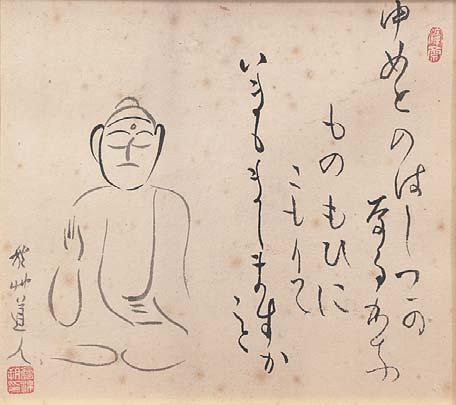 ゆめとのはしつか
なるかな
ものもひに
こもりて
いまもましますか
こと
秋艸道人